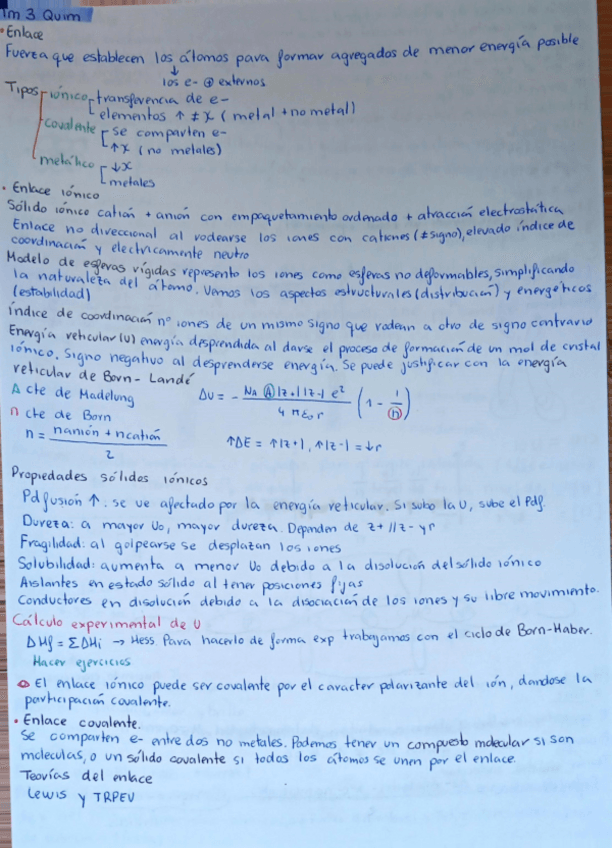 Tm 3 Quim
• Enlace
Fuerza que establecen los átomos para formar agregados de menor energía posible
↓
los e- ⊕ externos
Tipos
iónico
transferencia de e-
elementos ↑ ≠ X (metal + no metal)
covalente
se comparten e-
↑X (no metales)
metálico
↓X
metales
• Enlace iónico
Sólido iónico catión + anión con empaquetamiento ordenado + atracción electrostática
Enlace no direccional al rodearse los iones con cationes (≠signo), elevado índice de
coordinación y electricamente neutro
Modelo de esferas vígidas represento los iones como esferas no deformables, simplificando
la naturaleza del átomo. Vemos los aspectos estructurales (distribución) y energéticos
(estabilidad)
índice de coordinación nº iones de un mismo signo que rodean a otro de signo contrario
Energía reticular (U) energía desprendida al darse el proceso de formación de un mol de cristal
iónico. Signo negativo al desprenderse energía. Se puede justificar con la energía
reticular de Born-Landé
A cte de Madelung
ΔU = - NA A |z+| |z-| e² / 4 π ε₀ r (1 - 1/n)
n cte de Born
n = nanión + ncatión / 2
↑ΔE = ↑|z+|, ↑|z-| = ↓r
Propiedades sólidos iónicos
Pd fusión ↑. se ve afectado por la energía reticular. Si subo la U, sube el Pdf.
Dureza: a mayor U₀, mayor dureza. Dependen de z+ // z- y r
Fragilidad: al golpearse se desplazan los iones
Solubilidad: aumenta a menor U₀ debido a la disolución del sólido iónico
Aislantes en estado sólido al tener posiciones fijas
Conductores en disolución debido a la disociación de los iones y su libre movimiento.
Cálculo experimental de U
ΔHf = ΣΔHi → Hess. Para hacerlo de forma exp trabajamos con el ciclo de Born-Haber.
Hacer ejercicios
El enlace iónico puede ser covalente por el caracter polarizante del ión, dandose la
participación covalente.
• Enlace covalente.
Se comparten e- entre dos no metales. Podemos tener un compuesto molecular si son
moleculas, o un sólido covalente si todos los átomos se unen por el enlace.
Teorías del enlace
Lewis y TRPEV